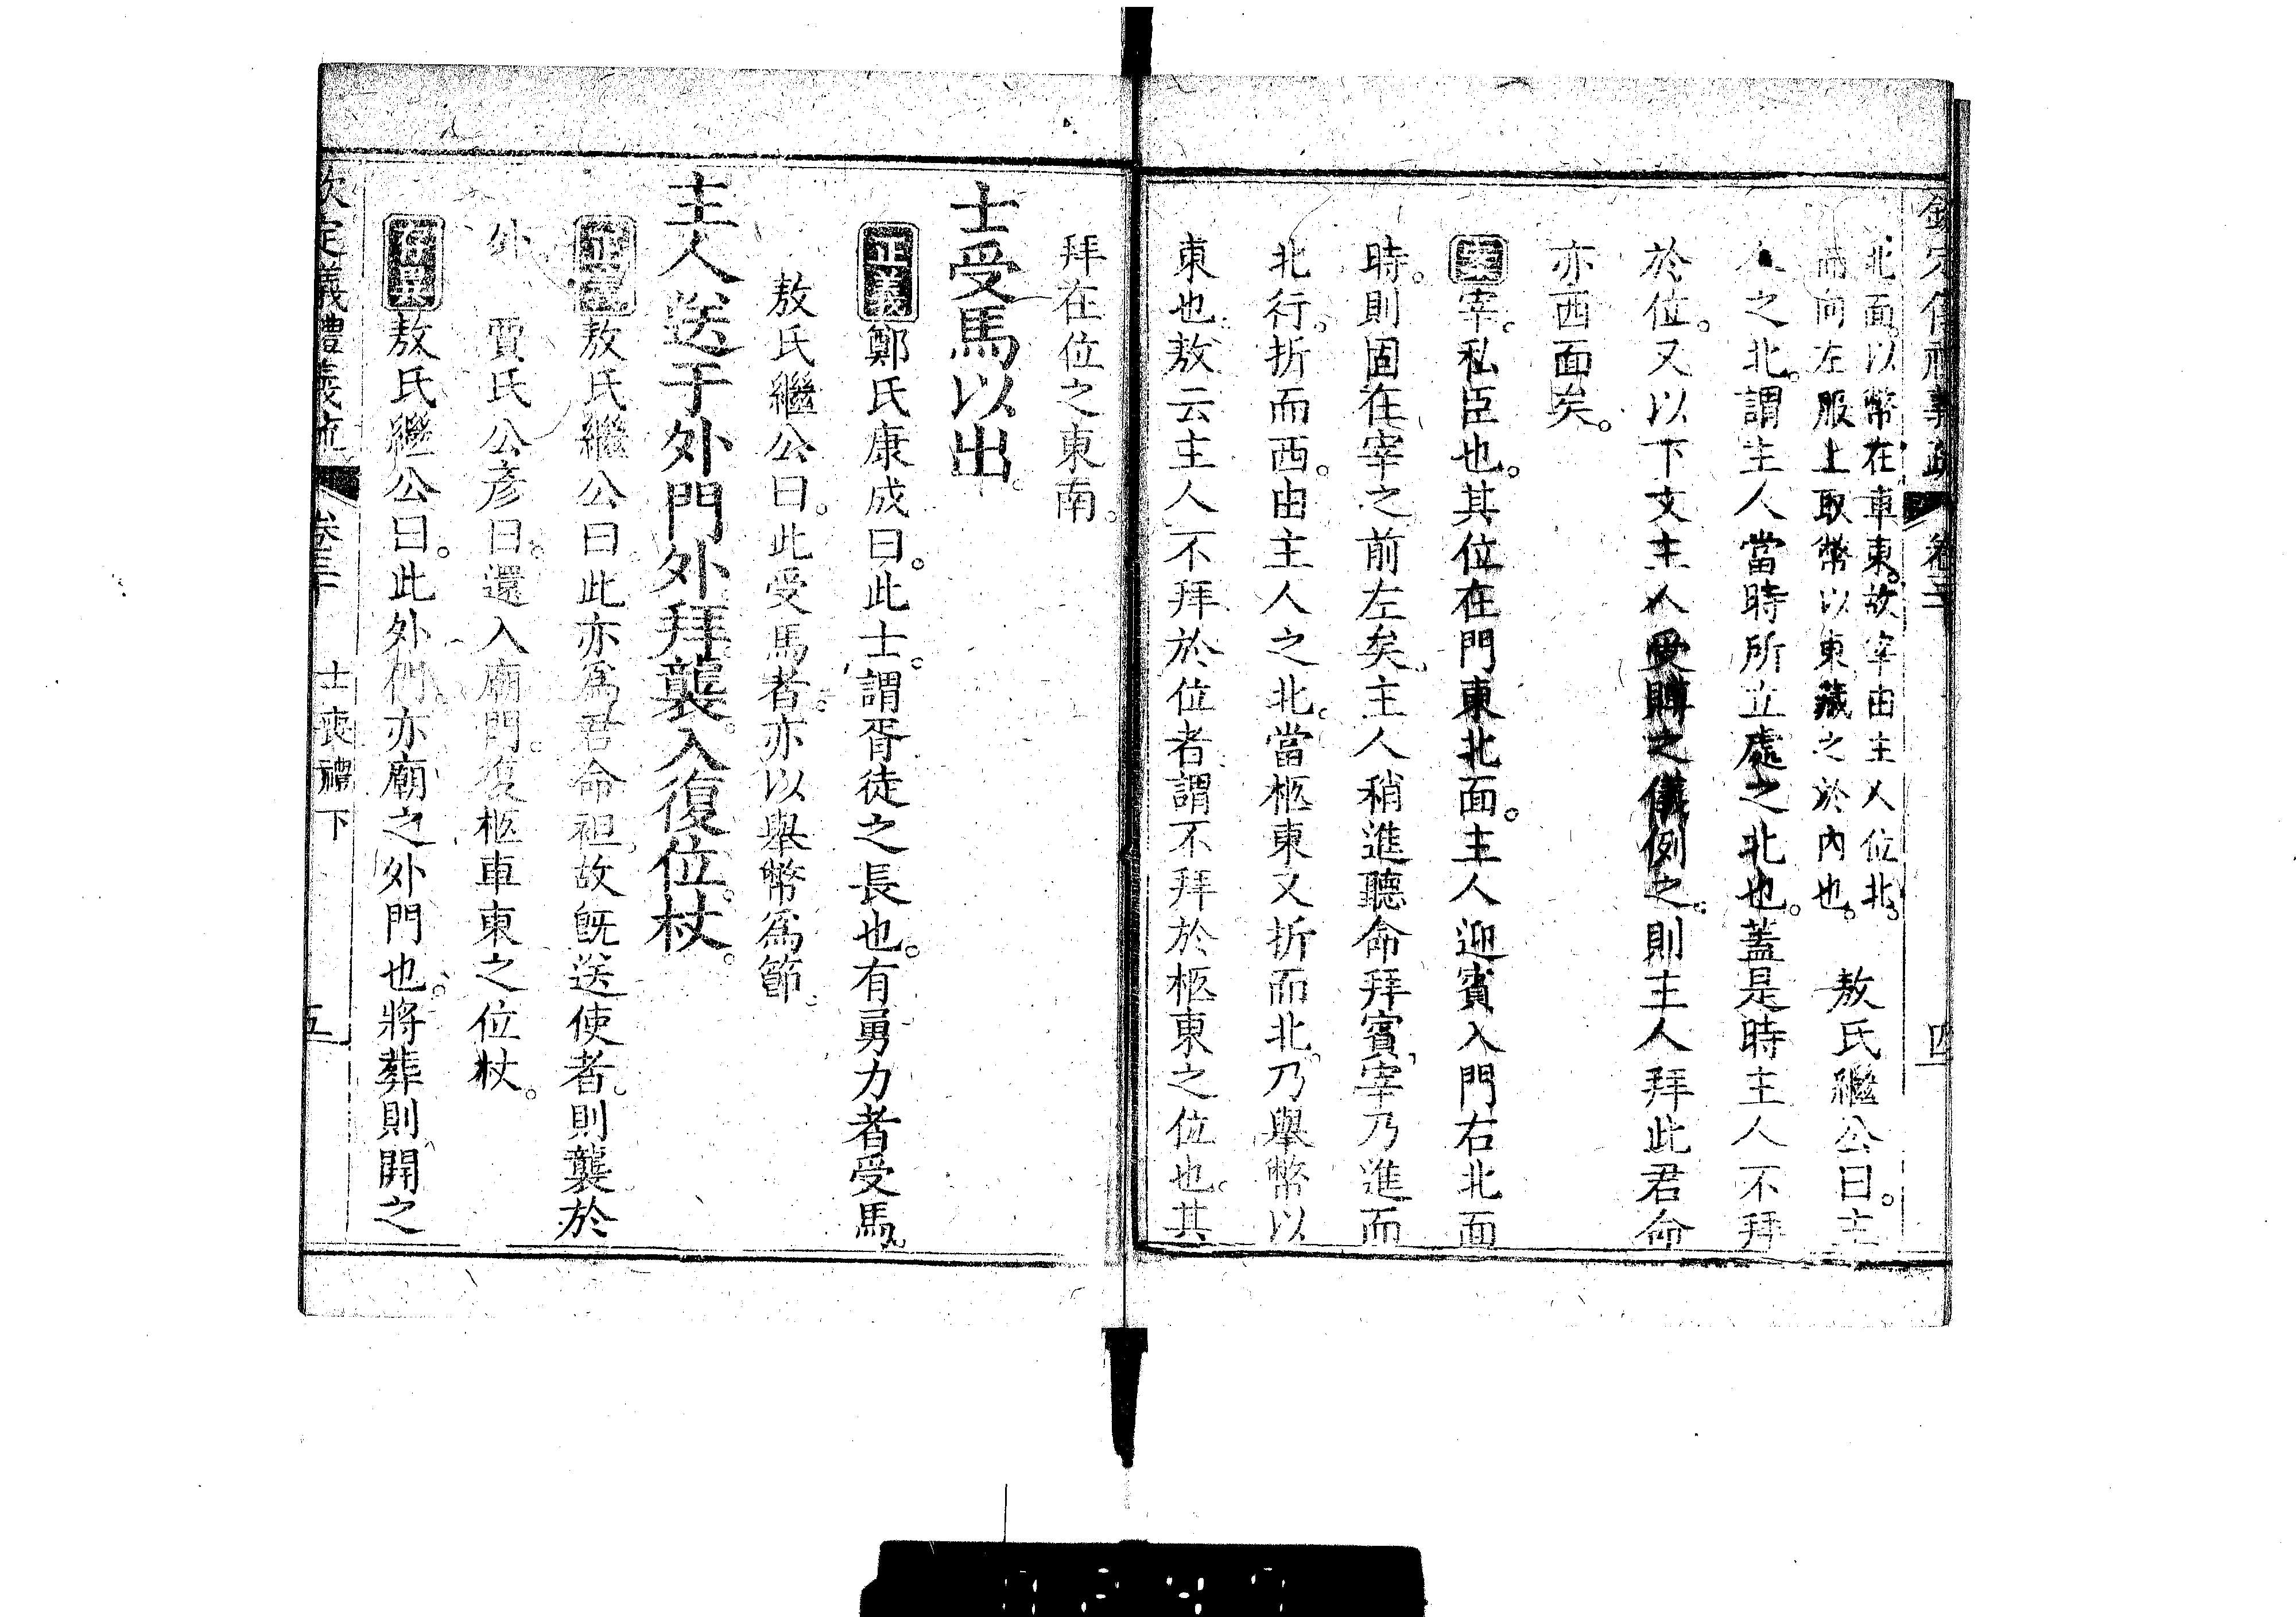 北面以幣在車東故宰由主人位北
而向左服上取幣以東藏之於內也。　敖氏繼公曰。主
人之北。謂主人當時所立處之北也。蓋是時主人不拜
於位。又以下文主人受賵之儀例之。則主人拜此君命
亦西面矣。
案宰。私臣也。其位在門東北面。主人迎賓入門右北面
時。則固在宰之前左矣。主人稍進聽命拜賓。宰乃進而
北行。折而西。由主人之北。當柩東又折而北。乃舉幣以
東也。敖云主人不拜於位者。謂不拜於柩東之位也。其
拜在位之東南。
士受馬以出。
正義鄭氏康成曰。此士。謂胥徒之長也。有勇力者受馬。
敖氏繼公曰。此受馬者。亦以舉幣為節。
主人送于外門外拜。襲。入復位。杖。
正義敖氏繼公曰。此亦為君命袒。故既送使者。則襲於
外　賈氏公彥曰。還入廟門。復柩車東之位杖。
存異敖氏繼公曰。此外門。亦廟之外門也。將葬則開之
欽定儀禮義疏　卷三十　士喪禮下　五